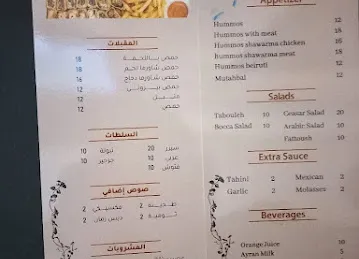 المقبلات
حمص باللحمة 18
حمص شاورما لحم 18
حمص شاورما دجاج 16
حمص بيروتي 12
متبل 12
حمص 12
السلطات
سيزر 20 تبولة 10
عربي 10 جرجير 10
فتوش 10
صوص إضافي
طحينة 2 مكسيكي 2
ثومية 2 دبس رمان 2
المشروبات
Appetizer
Hummos 12
Hummos with meat 18
Hummos shawarma chicken 16
Hummos shawarma meat 18
Hummos beiruti 12
Mutabbal 12
Salads
Tabouleh 10 Ceasar Salad 20
Rocca Salad 10 Arabic Salad 10
Fattoush 10
Extra Sauce
Tahini 2 Mexican 2
Garlic 2 Molasses 2
Beverages
Orange Juice 10
Ayran Milk 5